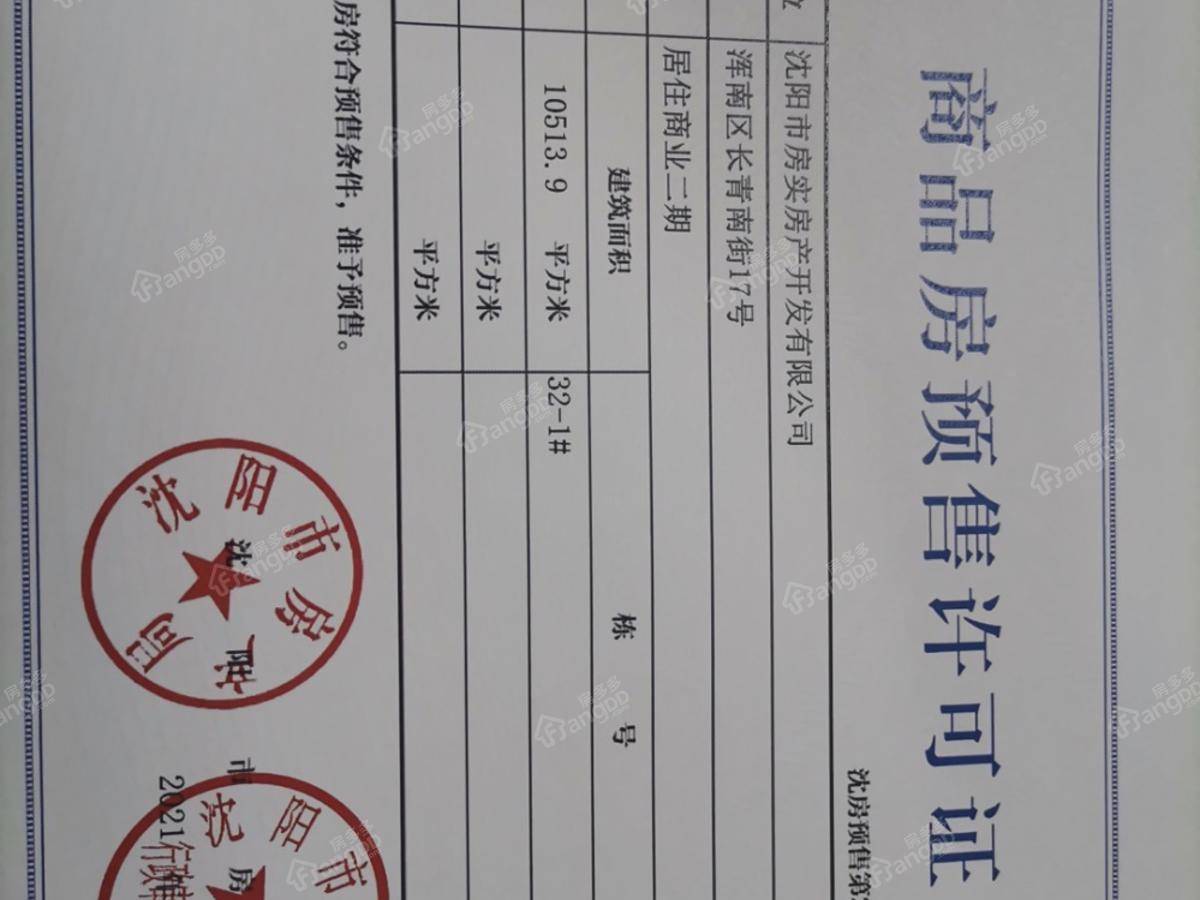 商品房预售许可证
沈房预售第
沈阳市房实房产开发有限公司
浑南区长青南街17号
居住商业二期
建筑面积 栋 号
10513.9 平方米 32-1#
平方米
平方米
房符合预售条件，准予预售。
沈阳市房
沈阳市房
沈阳市
2021
房多多
Fangdd